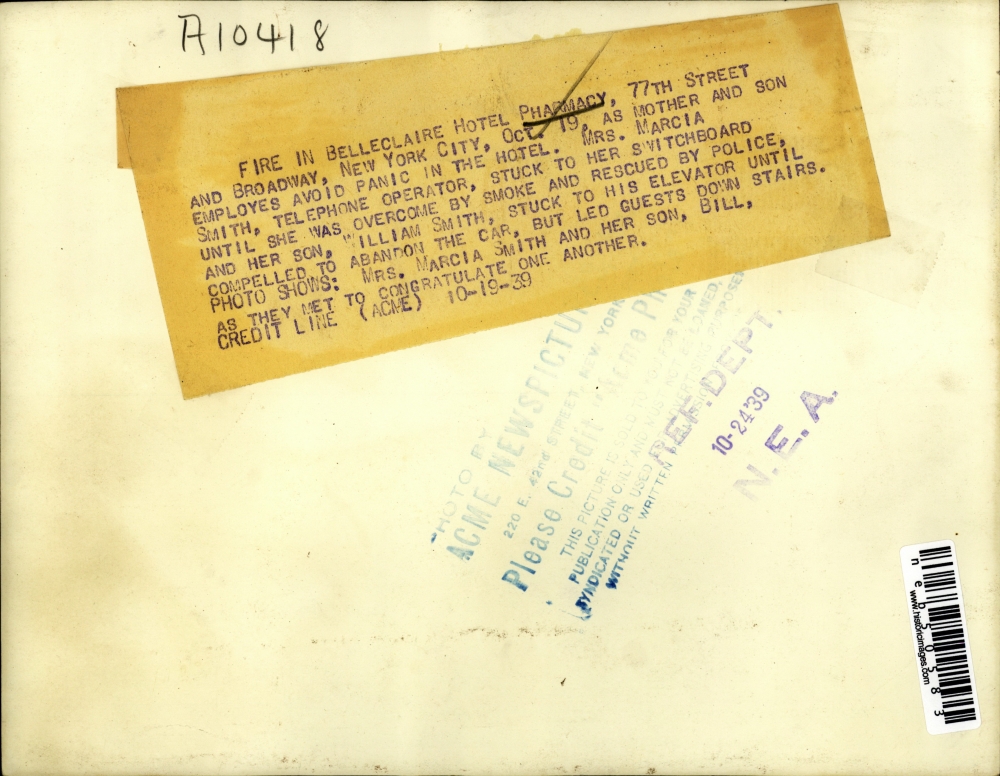 A10418
FIRE IN BELLECLAIRE HOTEL PHARMACY, 77TH STREET
AND BROADWAY, NEW YORK CITY, OCT. 19, AS MOTHER AND SON
EMPLOYES AVOID PANIC IN THE HOTEL. MRS. MARCIA
SMITH, TELEPHONE OPERATOR, STUCK TO HER SWITCHBOARD
UNTIL SHE WAS OVERCOME BY SMOKE AND RESCUED BY POLICE,
AND HER SON, WILLIAM SMITH, STUCK TO HIS ELEVATOR UNTIL
COMPELLED TO ABANDON THE CAR, BUT LED GUESTS DOWN STAIRS.
PHOTO SHOWS: MRS. MARCIA SMITH AND HER SON, BILL,
AS THEY MET TO CONGRATULATE ONE ANOTHER.
CREDIT LINE (ACME) 10-19-39
PHOTO BY
ACME NEWSPICTU
220 E. 42nd STREET, NEW YORK
Please Credit "Acme
THIS PICTURE IS SOLD TO YOU FOR YOUR
PUBLICATION ONLY AND MUST NOT BE LOANED,
SYNDICATED OR USED
WITHOUT WRITTEN
REF. DEPT.
10-24'39
N. E. A.
neb50583
www.historicimages.com